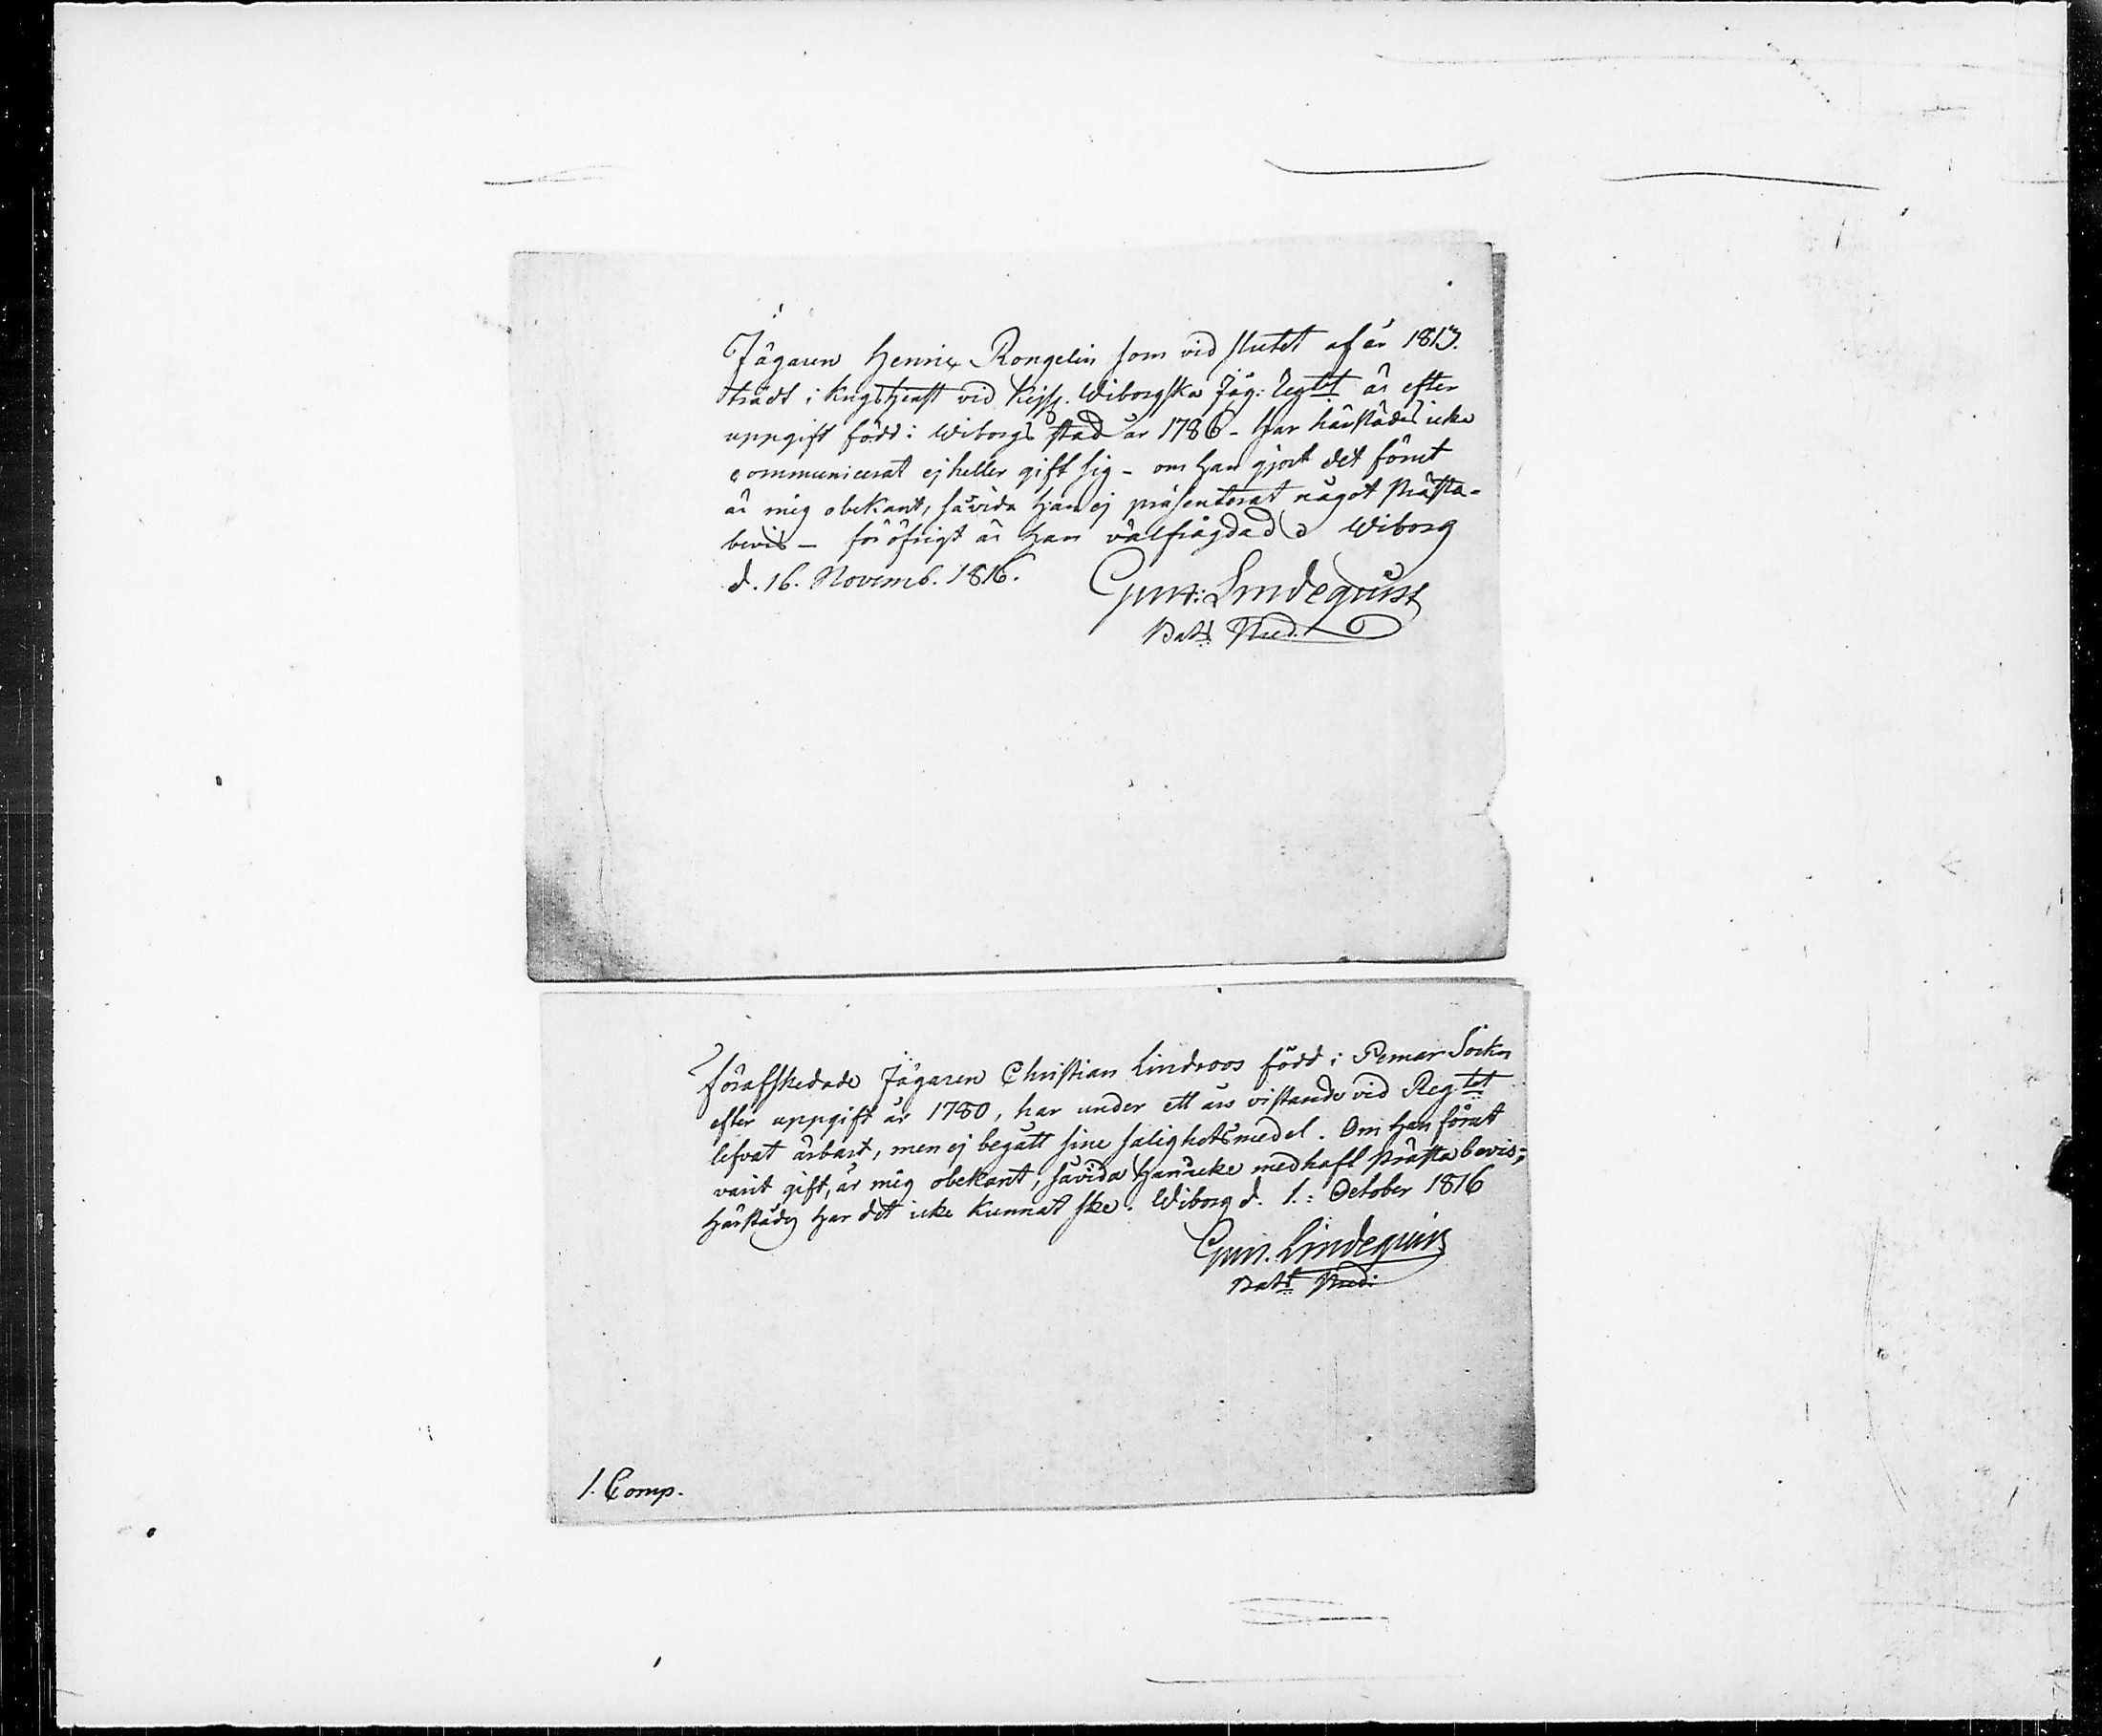 Jägaren Henric Rongelin som vid slutet af år 1813.
trädt i krigstjenst vid Kejs. Wiborgska Jäg: Reg:tet är efter
uppgift född i Wiborgs stad år 1786 - har härstädes icke
communicerat ej heller gift sig - om han gjort det förut
är mig obekant, såvida han ej præsenterat något Prästa-
bevis - för öfrigt är han välfrägdad Wiborg
d. 16. Novemb. 1816.
Gust: Lindequist
Bat:s Pred.
Förafskedade Jägaren Christian Lindroos född i Pemar Sockn
efter uppgift år 1780, har under ett års vistande vid Reg:tet
lefvat ärbart, men ej begått sine salighetsmedel. Om han förut
varit gift, är mig obekant, såvida han icke medhaft Prästabevis;
härstädes har det icke kunnat ske. Wiborg d. 1.: October 1816
Lindequist
Bat:s Pred:
1. Comp.